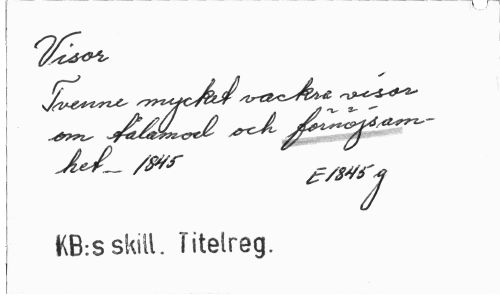 Visor
Tvenne mycket vackra visor
om tålamod och förnöjsam-
het_ 1845
E 1845 g
KB:s skill. Titelreg.